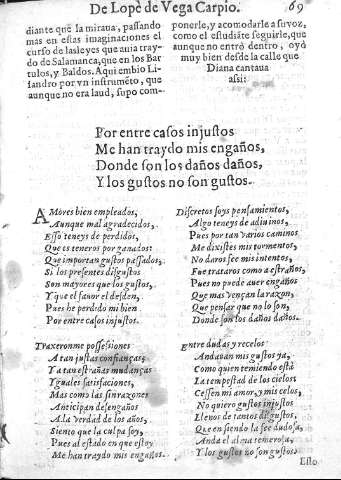 De Lope de Vega Carpio. 69
diante que la miraua, passando
mas en estas imaginaciones el
curso de las leyes que auia tray-
do de Salamanca, que en los Bar
tulos, y Baldos. Aqui embio Li-
sandro por vn instrumẽto, que
aunque no era laud, supo com-
ponerle, y acomodarle a su voz,
como el estudiãte seguirle, que
aunque no entrò dentro, oyò
muy bien desde la calle que
Diana cantaua
assi:
Por entre casos injustos
Me han traydo mis engaños,
Donde son los daños daños,
Y los gustos no son gustos.
AMores bien empleados,
Aunque mal agradecidos,
Esso teneys de perdidos,
Que es teneros por ganados:
Que importan gustos passados,
Si los presentes disgustos
Son mayores que los gustos,
Y que el fauor el desden,
Pues he perdido mi bien
Por entre casos injustos.
Traxeronme possessiones
A tan justas confianças,
Y a tan estrañas mudanças
Yguales satisfaciones,
Mas como las sinrazones
Anticipan desengaños
A la verdad de los años,
Siento que la culpa soy,
Pues al estado en que estoy
Me han traydo mis engaños.
Discretos soys pensamientos,
Algo teneys de adiuinos,
Pues por tan varios caminos
Me dixistes mis tormentos,
No daros fee mis intentos,
Fue trataros como a estraños,
Pues no puede auer engaños
Que mas vençan la razon,
Que pensar que no lo son,
Donde son los daños daños.
Entre dudas y recelos
Andauan mis gustos ya,
Como quien temiendo està
La tempestad de los cielos:
Cessen mi amor, y mis celos,
No quiero gustos injustos
Lleuos de tantos disgustos,
Que en siendo la fee dudosa,
Anda el alma temerosa,
Y los gustos no son gustos.
Esto